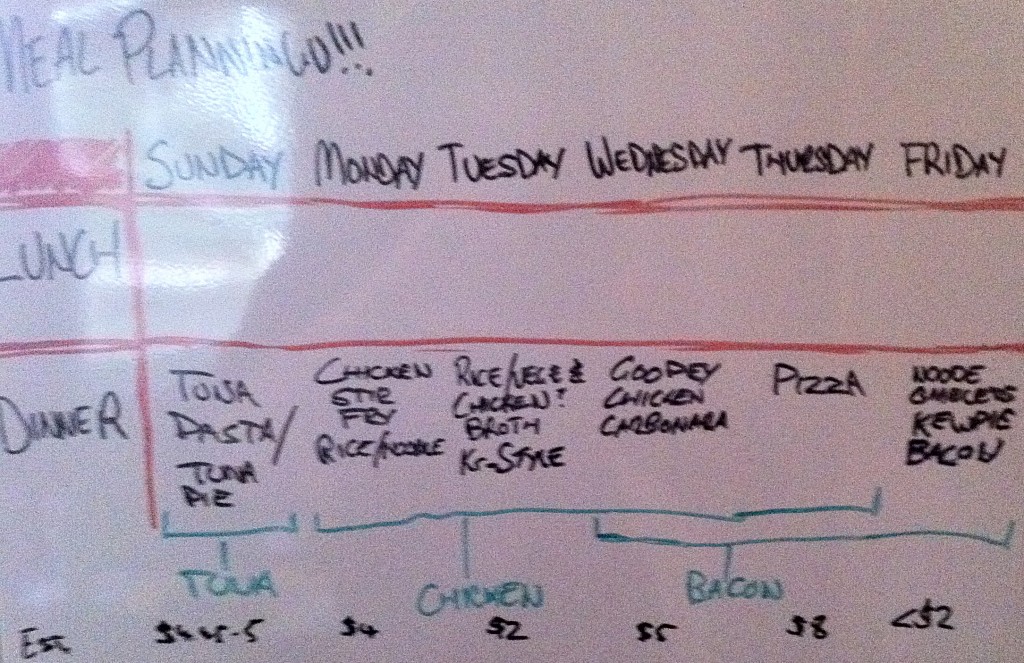 MEAL PLANNINGU!!!
SUNDAY MONDAY TUESDAY WEDNESDAY THURSDAY FRIDAY
LUNCH
DINNER
TUNA
PASTA/
TUNA
PIE
CHICKEN
STIR
FRY
RICE/NOODLE
RICE/VEGE &
CHICKEN?
BROTH
Kr-STYLE
GOOPEY
CHICKEN
CARBONARA
PIZZA
NOODE
OMBLETS
KEWPIE
BACON
TUNA CHICKEN BACON
Est $4 $2 $5 $8 <$2